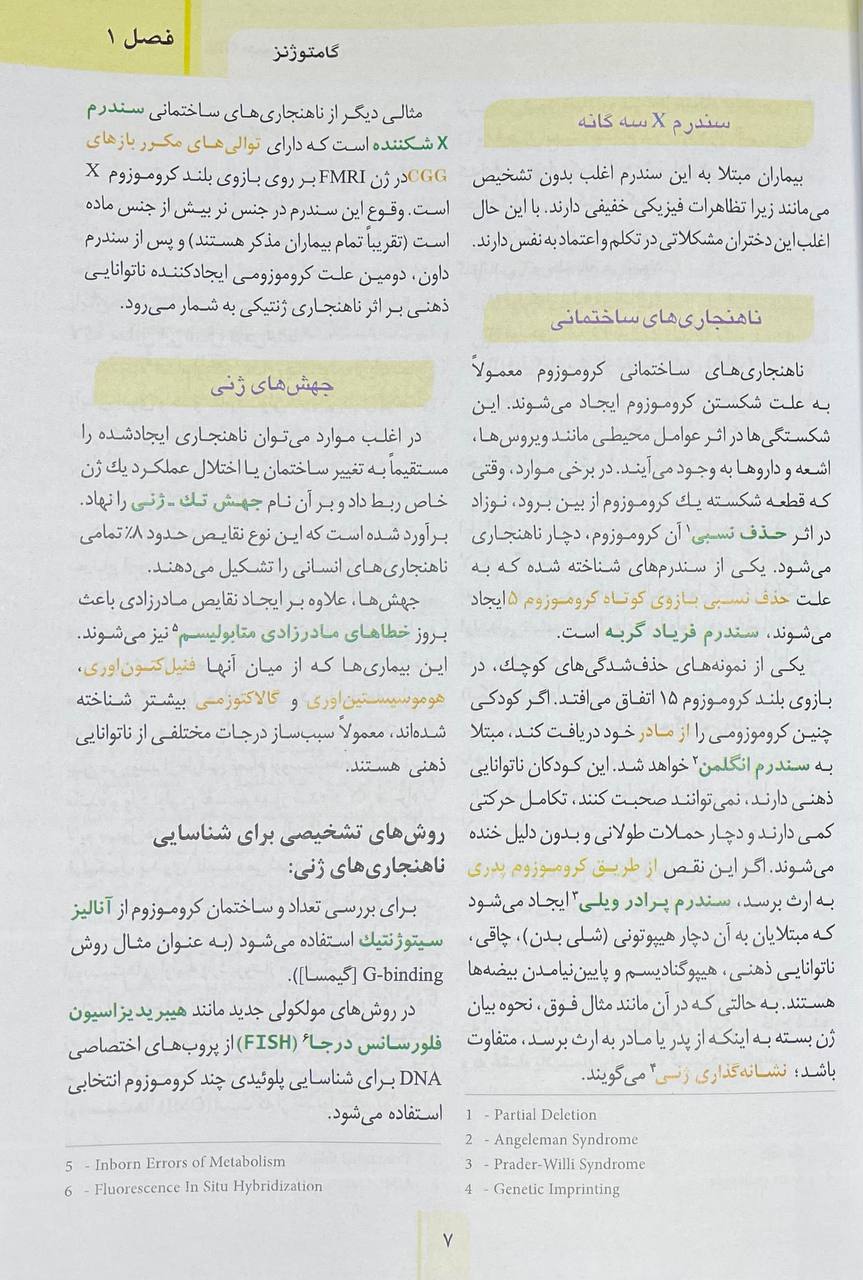 فصل ۱
گامتوژنز
سندرم X سه گانه
بیماران مبتلا به این سندرم اغلب بدون تشخیص
می‌مانند زیرا تظاهرات فیزیکی خفیفی دارند. با این حال
اغلب این دختران مشکلاتی در تکلم و اعتماد به نفس دارند.
ناهنجاری‌های ساختمانی
ناهنجاری‌های ساختمانی کروموزوم معمولاً
به علت شکستن کروموزوم ایجاد می‌شوند. این
شکستگی‌ها در اثر عوامل محیطی مانند ویروس‌ها،
اشعه و داروها به وجود می‌آیند. در برخی موارد، وقتی
که قطعه شکسته یک کروموزوم از بین برود، نوزاد
در اثر حذف نسبی۱ آن کروموزوم، دچار ناهنجاری
می‌شود. یکی از سندرم‌های شناخته شده که به
علت حذف نسبی بازوی کوتاه کروموزوم ۵ ایجاد
می‌شوند، سندرم فریاد گربه است.
یکی از نمونه‌های حذف‌شدگی‌های کوچک، در
بازوی بلند کروموزوم ۱۵ اتفاق می‌افتد. اگر کودکی
چنین کروموزومی را از مادر خود دریافت کند، مبتلا
به سندرم انگلمن۲ خواهد شد. این کودکان ناتوانایی
ذهنی دارند، نمی‌توانند صحبت کنند، تکامل حرکتی
کمی دارند و دچار حملات طولانی و بدون دلیل خنده
می‌شوند. اگر این نقص از طریق کروموزوم پدری
به ارث برسد، سندرم پرادر ویلی۳ ایجاد می‌شود
که مبتلایان به آن دچار هیپوتونی (شلی بدن)، چاقی،
ناتوانایی ذهنی، هیپوگنادیسم و پایین‌نیامدن بیضه‌ها
هستند. به حالتی که در آن مانند مثال فوق، نحوه بیان
ژن بسته به اینکه از پدر یا مادر به ارث برسد، متفاوت
باشد؛ نشانه‌گذاری ژنی۴ می‌گویند.
1 - Partial Deletion
2 - Angeleman Syndrome
3 - Prader-Willi Syndrome
4 - Genetic Imprinting
مثالی دیگر از ناهنجاری‌های ساختمانی سندرم
X شکننده است که دارای توالی‌های مکرر بازهای
CGG در ژن FMRI بر روی بازوی بلند کروموزوم X
است. وقوع این سندرم در جنس نر بیش از جنس ماده
است (تقریباً تمام بیماران مذکر هستند) و پس از سندرم
داون، دومین علت کروموزومی ایجادکننده ناتوانایی
ذهنی بر اثر ناهنجاری ژنتیکی به شمار می‌رود.
جهش‌های ژنی
در اغلب موارد می‌توان ناهنجاری ایجادشده را
مستقیماً به تغییر ساختمان یا اختلال عملکرد یک ژن
خاص ربط داد و بر آن نام جهش تک ـ ژنی را نهاد.
برآورد شده است که این نوع نقایص حدود ۸٪ تمامی
ناهنجاری‌های انسانی را تشکیل می‌دهند.
جهش‌ها، علاوه بر ایجاد نقایص مادرزادی باعث
بروز خطاهای مادرزادی متابولیسم۵ نیز می‌شوند.
این بیماری‌ها که از میان آنها فنیل‌کتون‌اوری،
هوموسیستین‌اوری و گالاکتوزمی بیشتر شناخته
شده‌اند، معمولاً سبب‌ساز درجات مختلفی از ناتوانایی
ذهنی هستند.
روش‌های تشخیصی برای شناسایی
ناهنجاری‌های ژنی:
برای بررسی تعداد و ساختمان کروموزوم از آنالیز
سیتوژنتیک استفاده می‌شود (به عنوان مثال روش
G-binding [گیمسا]).
در روش‌های مولکولی جدید مانند هیبریدیزاسیون
فلورسانس درجا۶ (FISH) از پروب‌های اختصاصی
DNA برای شناسایی پلوئیدی چند کروموزوم انتخابی
استفاده می‌شود.
5 - Inborn Errors of Metabolism
6 - Fluorescence In Situ Hybridization
۷